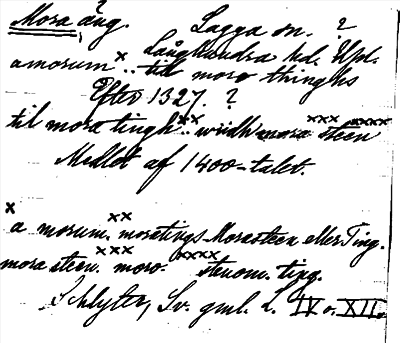 Mora äng. Lagga sn. ?
Långhundra hd. Upl.
a morum x .. till mora thinghs
Efter 1327. ?
til mora tingh xx .. widh mora xxx steen xxxx
Medlet af 1400-talet.
x a morum. xx morætings Morasteen eller Ting.
mora steen. xxx moro. xxxx stenom. ting.
Schlyter, Sv. gml. L. IV o. XII.